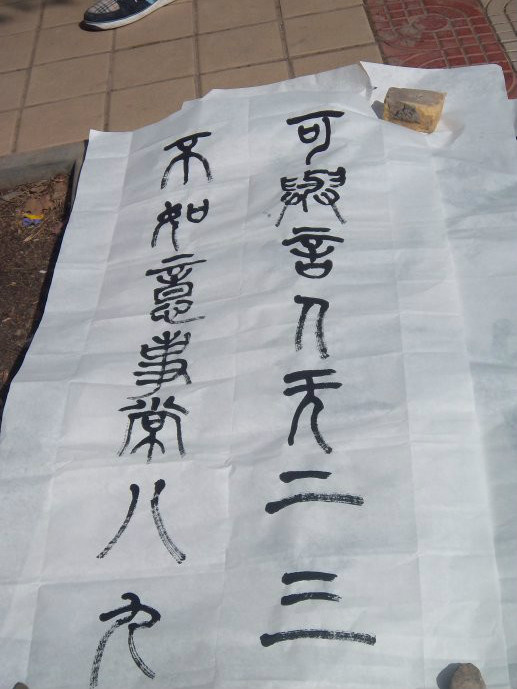 可與言人无二三
不如意事常八九